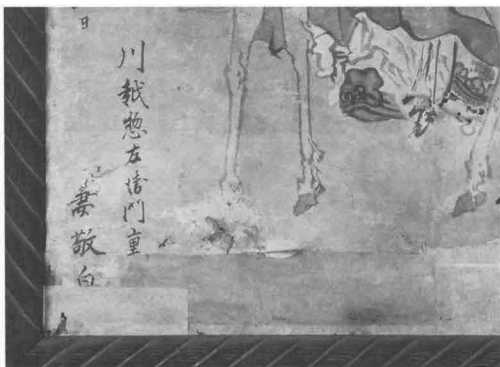 川越惣左衛門重
日
敬白